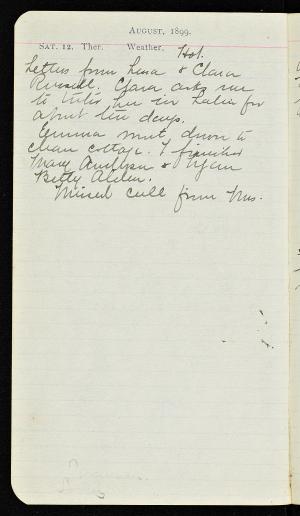 August, 1899.
Sat. 12. Ther. Weather. Hot.
Letters from Lena & Clara
Russell. Clara asks me
to tutor her in Latin for
about ten days.
Emma went down to
clean cottage. I finished
Mary & 
Betty Alden.
Missed call from Mrs.